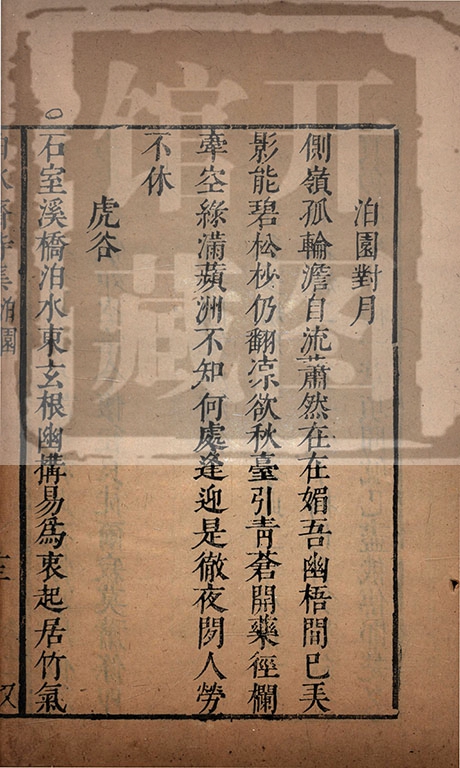 泊園對月
側嶺孤輪澹自流蕭然在在媚吾幽梧間巳弄
影能碧松杪仍翻凉欲秋臺引青蒼開藥徑欄
牽空綠滿蘋洲不知何處逢迎是徹夜閑人勞
不休
虎谷
石室溪橋泊水東玄根幽搆易為衷起居竹氣
泊園
开图
馆藏